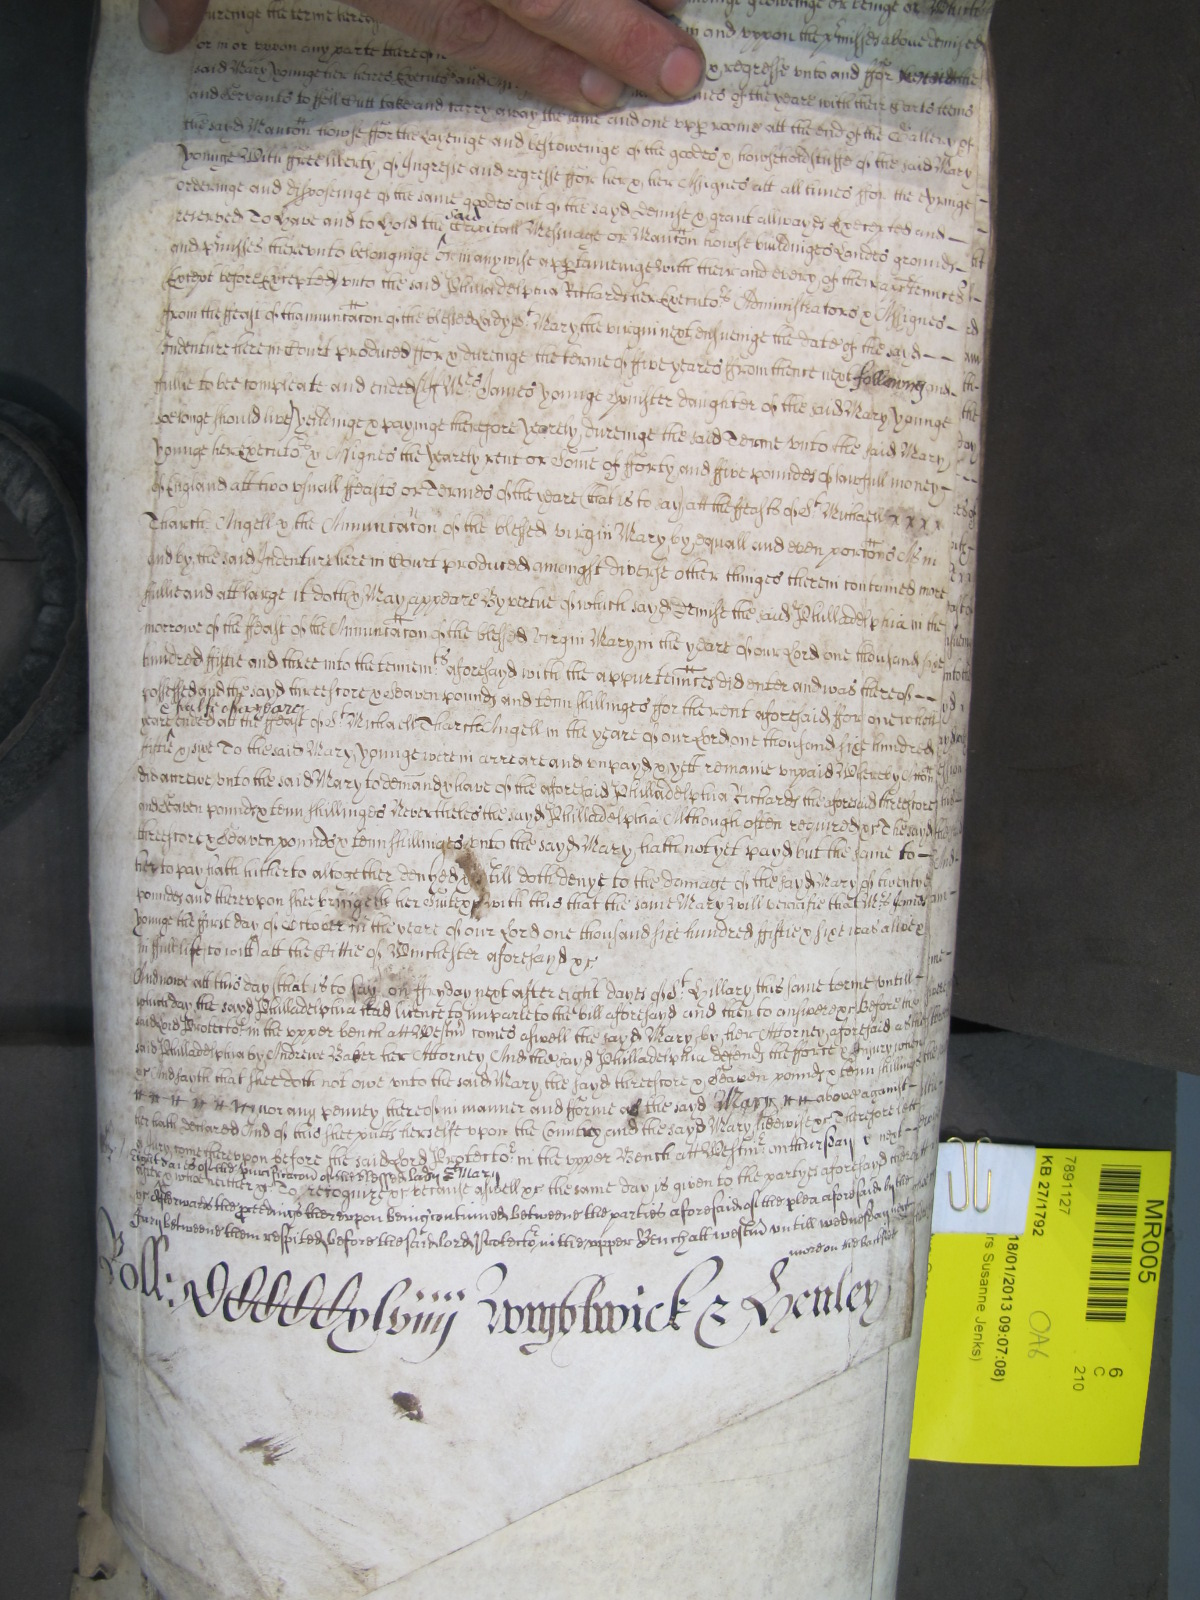 dureinge the terme hereof
in and uppon the p'misses above demised
or in or uppon any parte thereof
regresse unto and ffor
said Mary Younge her heires Executo's and
tymes of the yeare with their Carts teems
and Servants to ffell Cutt take and carry away the same and one upp roome att the end of the Gallery of
the said Manc'on howse ffor the Layeinge and bestoweinge of the goodes & howsehold stuffe of the said Mary
Younge With ffree liberty of Ingresse and regresse ffor her & her Assignes att all times ffor the
orderinge and disposeinge of the same goodes out of the sayd demise & grant allwayes Excepted and
reserved To Have and to Hold the said Capitall Messuage or Manc'on howse buildinges Landes grounds
and p'misses thereunto belonginge or in any wise app'tayneinge with their and every of their appurtennces
Except before Excepted unto the said Philladelphia Richards her Executo's Administrators & Assignes
from the ffeast of thannuntac'on of the blessed Lady St Mary the virgin next ensueinge the date of the said
Indenture here in Court produced ffor & dureinge the terme of ffive yeares ffrom thence next followeing and
fullie to bee compleate and ended if Mrs James Younge Spinster daughter of the said Mary Younge
soe longe should live Yeildinge & payinge therefore yearely dureinge the said Terme unto the said Mary
Younge her Executo's & Assignes the yearely rent or Some of fforty and ffive poundes of lawfull money
of England att two usuall ffeasts or Termes of the yeare that is to say att the ffeasts of St Michaell x x x x
Tharch Angell & the Annuntac'on of the blessed virgin Mary by equall and even porc'ons As in
and by the said Indenture here in Court produced amongst diverse other thinges therein contained more
fullie and att large it doth & May appeare By vertue of which sayd demise the said Philladelphia in the
morrowe of the ffeast of the Annuntac'on of the blessed virgin Mary in the yeare of our Lord one thousand sixe
hundred ffiftie and three into the tennem'ts aforesayd with the appurtennces did enter and was thereof
possessed and the sayd threescore & Seaven pounds and tenn shillinges ffor the rent aforesaid ffor one whole
& halfe of a yeare
yeare ended att the ffeast of St Michaell Tharch Angell in the yeare of our Lord one thousand sixe hundred
ffiftie & sixe To the said Mary Younge were in arreare and unpayd & yett remaine unpaid Whereby Acc'on
did accrewe unto the said Mary to demand & have of the aforesaid Philladelphia Richards the aforesaid threescore
and Seaven pounds & tenn shillinges Neverthelesse the sayd Philladelphia Although often required &c The sayd
threescore & Seaven pounds & tenn shillinges unto the sayd Mary hath not yet payd but the same to
her to pay hath hitherto altogether denyed & still doth denye to the damage of the sayd Mary of twentye
pounds and thereupon shee bringeth her Suite &c with this that the same Mary will verifie that Mrs James
Younge the first day of October in the yeare of our Lord one thousand sixe hundred ffiftie & sixe was alive &
in ffull life to witt att the Cittie of Winchester aforesayd &c
And nowe att this day that is to say on ffryday next after eight dayes of St Hillary this same terme untill
which day the sayd Philladelphia had licence to imparle to the bill aforesaid and then to answere &c Before the
said Lord Protecto' in the upper bench att Westm' comes aswell the sayd Mary by her Attorney aforesaid as the
said Philladelphia by Andrewe Baker her Attorney And the sayd Philladelphia defends the fforce & Injury when
&c And sayth that shee doth not owe unto the said Mary the sayd threescore & Seaven pounds & tenn shillinges
nor any penney thereof in manner and fforme as the sayd Mary above against
her hath declared And of this shee putts herselfe upon the Country and the sayd Mary likewise &c Therefore lett
a Jury come thereupon before the said Lord Protecto' in the upper Bench att Westm' on thursday next
eight dayes of the purificac'on of the blessed Lady St Mary
after & who neither &c To recognize &c because aswell &c the same day is given to the partyes aforesayd there
&c Afterwards the p'ceedings thereupon being continued betweene the parties aforesaid of the plea aforesaid by the
Jury betweene them respited before the said lord protector in the upper Bench att westm' untill wednesday next
more on the backside
Roll: Wightwick & Henley
MR005
6
C
210
7891127
KB 27/1792
18/01/2013 09:07:08)
OA6
rs Susanne Jenks)